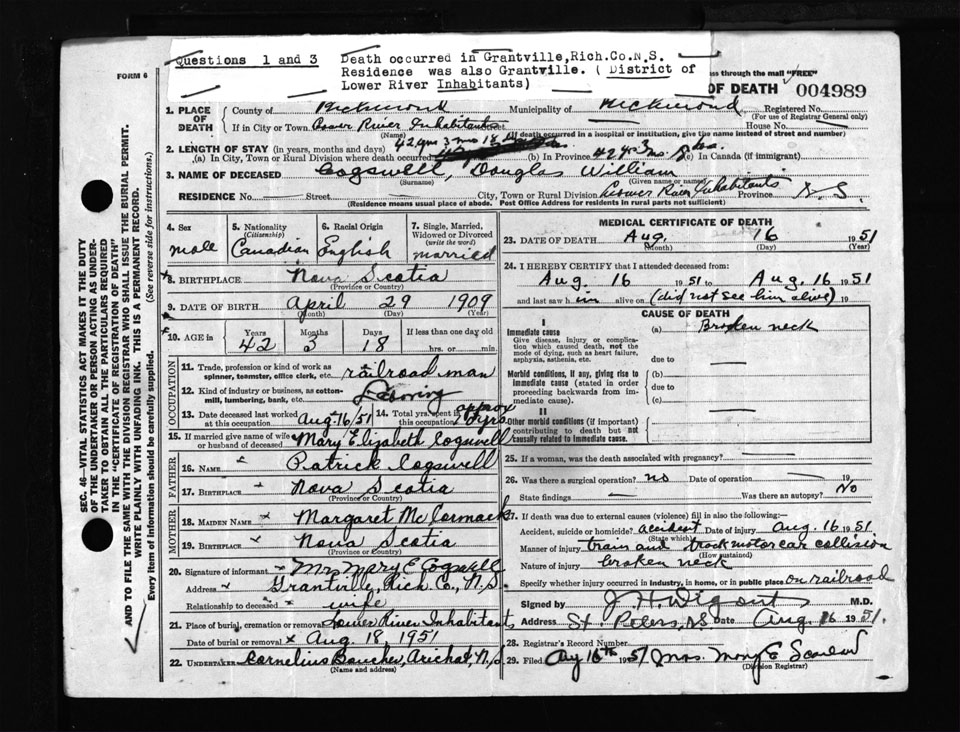 FORM 6
Questions 1 and 3 Death occurred in Grantville,Rich.Co.N.S.
Residence was also Grantville. ( District of
Lower River Inhabitants)
ss through the mail "FREE"
OF DEATH 004989
1. PLACE OF DEATH County of Richmond Municipality of Richmond Registered No.
(For use of Registrar General only)
If in City or Town Lower River Inhabitants House No.
(Name) If death occurred in a hospital or institution, give the name instead of street and number)
2. LENGTH OF STAY (in years, months and days) 42 yrs 3 mo 18
(a) In City, Town or Rural Division where death occurred (b) In Province 42 yrs 3 mo. (c) In Canada (if immigrant)
3. NAME OF DECEASED Cogswell, Douglas William
(Surname) (Given name or names)
RESIDENCE No. Street City, Town or Rural Division Lower River Inhabitants Province N.S.
(Residence means usual place of abode. Post Office Address for residents in rural parts not sufficient)
4. Sex male
5. Nationality (Citizenship) Canadian
6. Racial Origin English
7. Single, Married, Widowed or Divorced (write the word) married
8. BIRTHPLACE Nova Scotia
(Province or Country)
9. DATE OF BIRTH April 29 1909
(Month) (Day) (Year)
10. AGE in Years 42 Months 3 Days 18 If less than one day old
hrs. or min.
OCCUPATION
11. Trade, profession or kind of work as spinner, teamster, office clerk, etc. railroad man
12. Kind of industry or business, as cotton-mill, lumbering, bank, etc. Laboring
13. Date deceased last worked at this occupation Aug 16/51
14. Total yrs. spent in this occupation approx yrs
15. If married give name of wife or husband of deceased Mary Elizabeth Cogswell
FATHER
16. NAME Patrick Cogswell
17. BIRTHPLACE Nova Scotia
(Province or Country)
MOTHER
18. MAIDEN NAME Margaret McCormack
19. BIRTHPLACE Nova Scotia
(Province or Country)
20. Signature of informant Mrs Mary E Cogswell
Address Grantville, Rich Co., N.S.
Relationship to deceased wife
21. Place of burial, cremation or removal Lower River Inhabitants
Date of burial or removal Aug. 18, 1951
22. UNDERTAKER Cornelius Boucher, Arichat, N.S
(Name and address)
MEDICAL CERTIFICATE OF DEATH
23. DATE OF DEATH Aug. 16 1951
(Month) (Day) (Year)
24. I HEREBY CERTIFY that I attended deceased from:
Aug. 16 1951 to Aug. 16 1951
and last saw him alive on (did not see him alive) 19
CAUSE OF DEATH
I
Immediate cause (a) Broken neck
Give disease, injury or complication which caused death, not the mode of dying, such as heart failure, asphyxia, asthenia, etc.
due to
Morbid conditions, if any, giving rise to immediate cause (stated in order proceeding backwards from immediate cause).
(b)
due to
(c)
II
Other morbid conditions (if important) contributing to death but not causally related to immediate cause.
25. If a woman, was the death associated with pregnancy?
26. Was there a surgical operation? no Date of operation 19
State findings Was there an autopsy? No
27. If death was due to external causes (violence) fill in also the following:
Accident, suicide or homicide? accident Date of injury Aug. 16 1951
(State which)
Manner of injury train and track motor car collision
(How sustained)
Nature of injury broken neck
Specify whether injury occurred in industry, in home, or in public place on railroad
Signed by M.D.
Address St. Peters, NS Date Aug 16 1951.
28. Registrar's Record Number
29. Filed Aug 16th 1951 Mrs. Mary E
(Division Registrar)
SEC. 46—VITAL STATISTICS ACT MAKES IT THE DUTY
OF THE UNDERTAKER OR PERSON ACTING AS UNDER-
TAKER TO OBTAIN ALL THE PARTICULARS REQUIRED
IN THE "CERTIFICATE OF REGISTRATION OF DEATH"
AND TO FILE THE SAME WITH THE DIVISION REGISTRAR WHO SHALL ISSUE THE BURIAL PERMIT.
WRITE PLAINLY WITH UNFADING INK. THIS IS A PERMANENT RECORD.
Every item of information should be carefully supplied. (See reverse side for instructions.)